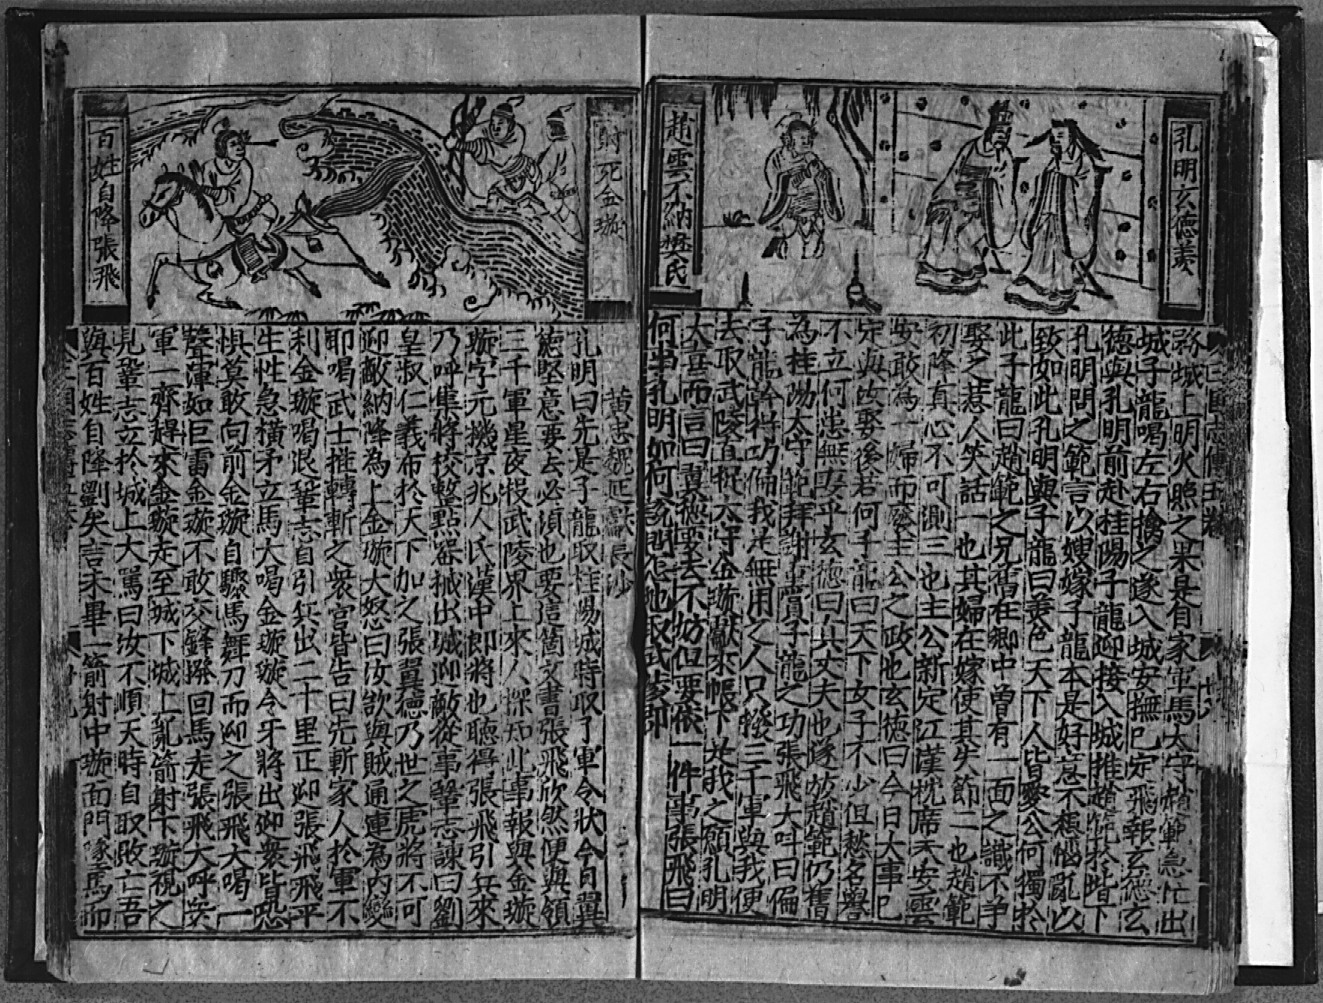 孔明玄德羨
趙雲不納樊氏
路城上明火照之果是自家軍馬太守趙範急忙出
城子龍喝左右擒之遂入城安撫已定飛報玄德玄
德與孔明前赴桂陽子龍迎接入城推趙範於堦下
孔明問之範言以嫂嫁子龍本是好意不想惱亂以
致如此孔明與子龍曰美色天下人皆愛公何獨於
此子龍曰趙範之兄舊在鄉中曽有一面之識不争
娶之惹人笑話一也其婦在嫁使其失節二也趙範
初降真心不可測三也主公新定江漢枕席未安雲
安敢為一婦而廢主公之政也玄德曰今日大事已
定與汝娶後若何子龍曰天下女子不少但愁名譽
不立何患無妻乎玄德曰真丈夫也遂放趙範仍舊
為桂陽太守範拜謝重賞子龍之功張飛大呌曰偏
子龍幹得功偏我是無用之人只撥三千軍與我便
去取武陵直捉太守金璇獻來帳下是我之願孔明
大喜而言曰翼德要去不妨但要依一件事張飛曰
何事孔明如何說問怎地取武陵即
射死金璇
百姓自降張飛
黃忠魏延獻長沙
孔明曰先是子龍取桂陽城時取了軍令狀今日翼
德堅意要去必須也要這箇文書張飛欣然便與領
三千軍星夜投武陵界上來人探知此事報與金璇
璇字元機京兆人氏漢中郎將也聽得張飛引兵來
乃呼集將校整點器械出城迎敵從事鞏志諫曰劉
皇叔仁義布於天下加之張翼德乃世之虎將不可
迎敵納降為上金璇大怒曰汝欲與賊通連為内變
耶喝武士推轉斬之衆官皆告曰先斬家人於軍不
利金璇喝退鞏志自引兵出二十里正迎張飛飛平
生性急橫矛立馬大喝金璇璇令牙將出迎衆皆恐
惧莫敢向前金璇自驟馬舞刀而迎之張飛大喝一
聲渾如巨雷金璇不敢交鋒撥回馬走張飛大呼衆
軍一齊趕來金璇走至城下城上亂箭射下璇視之
見鞏志立於城上大罵曰汝不順天時自取敗亡吾
與百姓自降劉矣言未畢一箭射中璇面門墜馬而